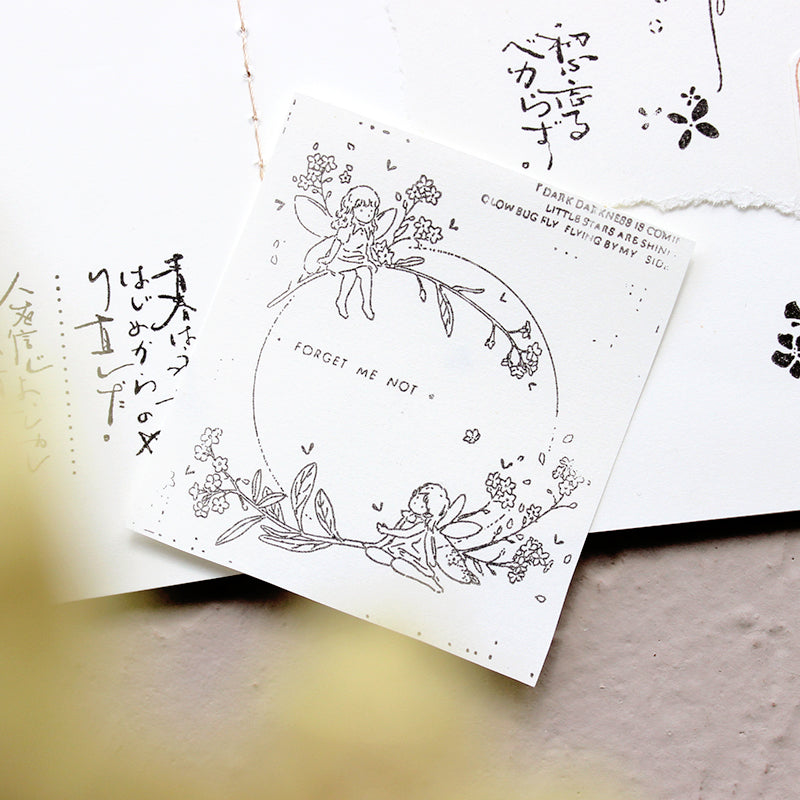 初心忘る
べからず。
DARK DARKNESS IS
LITTLE STARS ARE
GLOW BUG FLY FLYING BY MY
FORGET ME NOT
青春は
はじめからの
り直しだ。
人を信じよ、しかし